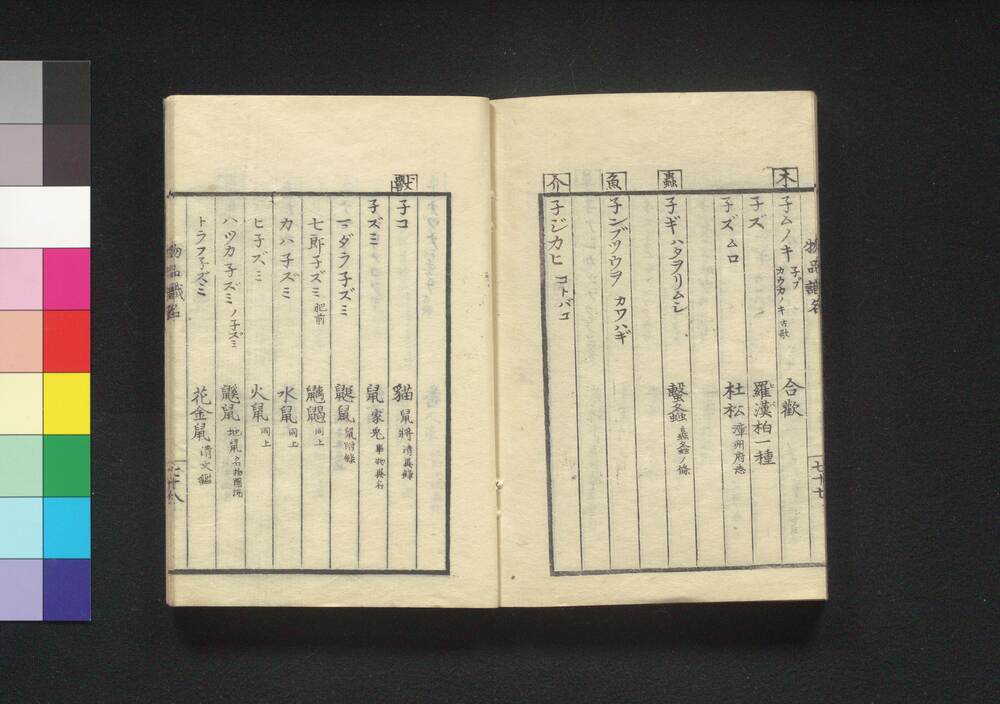 物品識名
木
子ムノキ 子ブ カウカノキ 古歌 合歡
子ズ 羅漢柏一種
子ズムロ 杜松 漳州府志
蟲
子ギハタヲリムシ 螽 ノ條
魚
子ンブツウヲ カワハギ
介
子ジカヒ コトバコ
七十七
獸
子コ 貓 鼠將 清異錄
子ズミ 鼠 家兔 事物異名
マダラ子ズミ 鼮鼠 鼠附錄
七郎子ズミ 肥前 同上
カハ子ズミ 水鼠 同上
ヒ子ズミ 火鼠 同上
ハツカ子ズミ ノ子ズミ 鼷鼠 地鼠 名物圖
トラフ子ズミ 花金鼠 清文鑑
物品識名
七十八